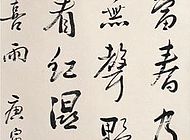 當春乃
無聲野
看紅濕
喜雨 庚